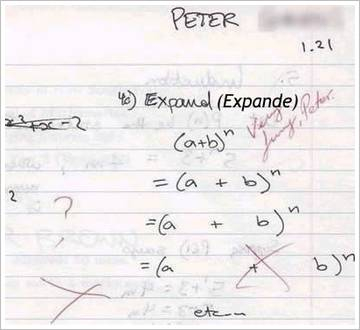 PETER
1.21
4c) Expand (Expande)
Very funny, Peter.
x³+x-2
(a+b)ⁿ
= (a + b)ⁿ
2
?
= (a + b)ⁿ
= (a + b)ⁿ
etc...